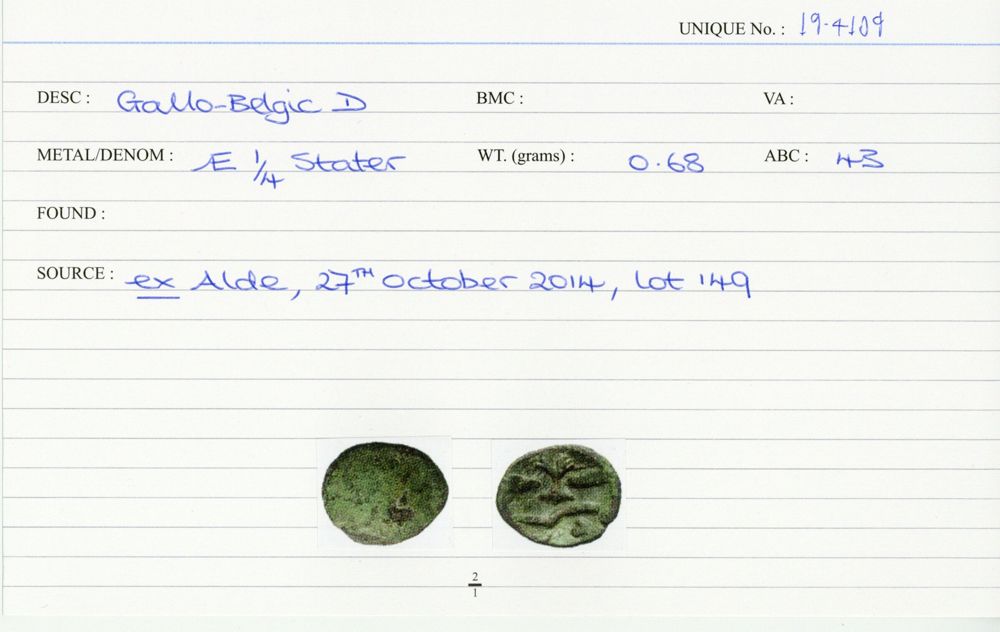 UNIQUE No. : 19.4109
DESC : Gallo-Belgic D BMC : VA :
METAL/DENOM : Æ 1/4 Stater WT. (grams) : 0.68 ABC : 43
FOUND :
SOURCE : ex Alde, 27TH October 2014, lot 149
2/1